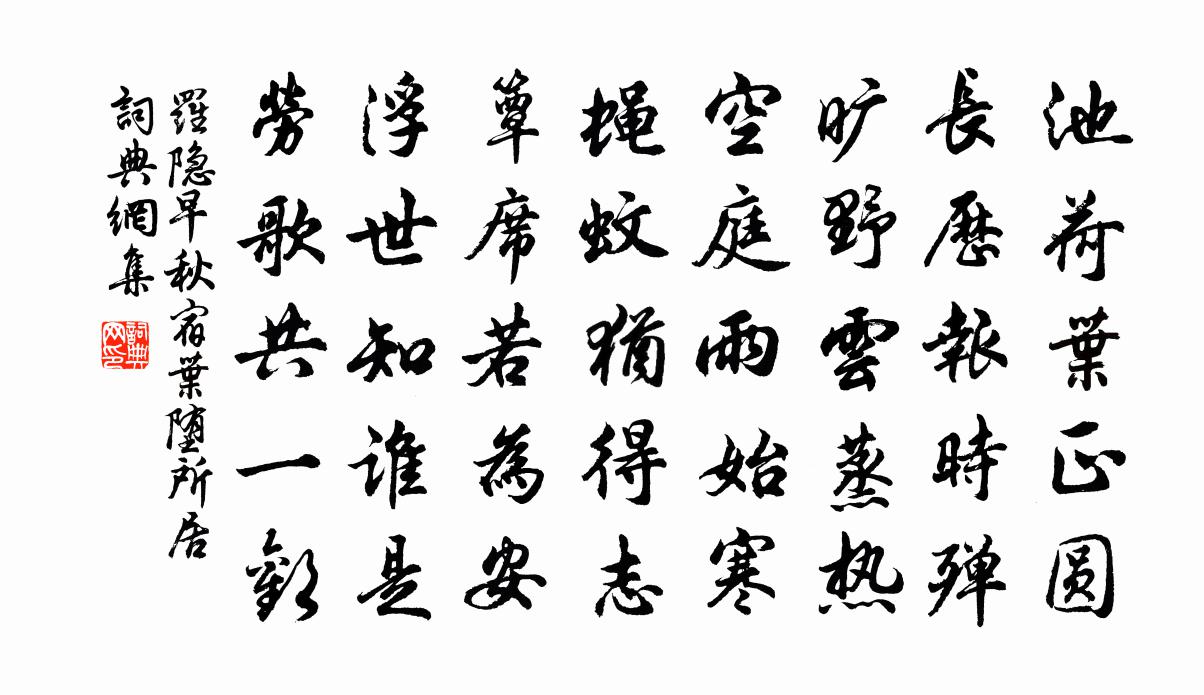 池荷葉正圆
長歷報時殫
旷野雲蒸热
空庭雨始寒
蝇蚊猶得志
簟席若為安
浮世知誰是
勞歌共一歡
羅隐早秋宿葉堕所居
詞典網集
詞典网印